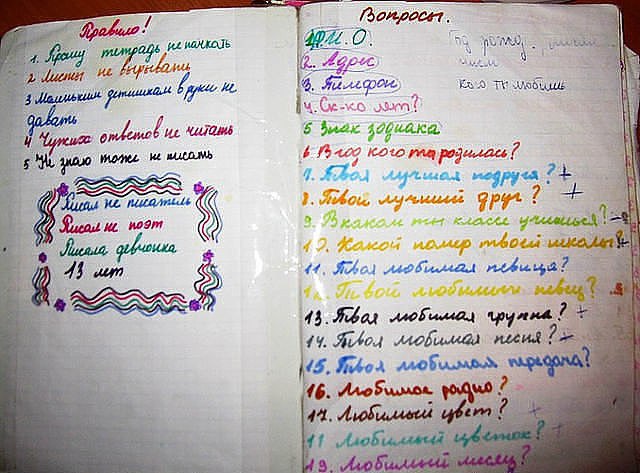 Правило!
1. Прошу тетрадь не пачкать
2 Листы не вырывать
3 Маленьким детишкам в руки не
давать
4 Чужих ответов не читать
5 Не знаю тоже не писать
Писал не писатель
Писал не поэт
Писала девчонка
13 лет
Вопросы.
1 Ф.И.О.
2. Адрес
3. Тилефон
4. Ск-ко лет?
5 Знак зодиака
6 В год кого ты родилась?
7. Твоя лучшая подруга? +
8. Твой лучший друг? +
9. В каком ты классе учишься?
10. Какой намер твоей школы? +
11. Твоя любимая певица?
12. Твой любимый певец?
13. Твоя любимая группа? +
14. Твоя любимая песня?
15. Твоя любимая передача?
16. Любимое радио?
17. Любимый цвет? +
11 Любимый цветок? +
19. Любимый месяц?
Год рожд.
кого ты любишь